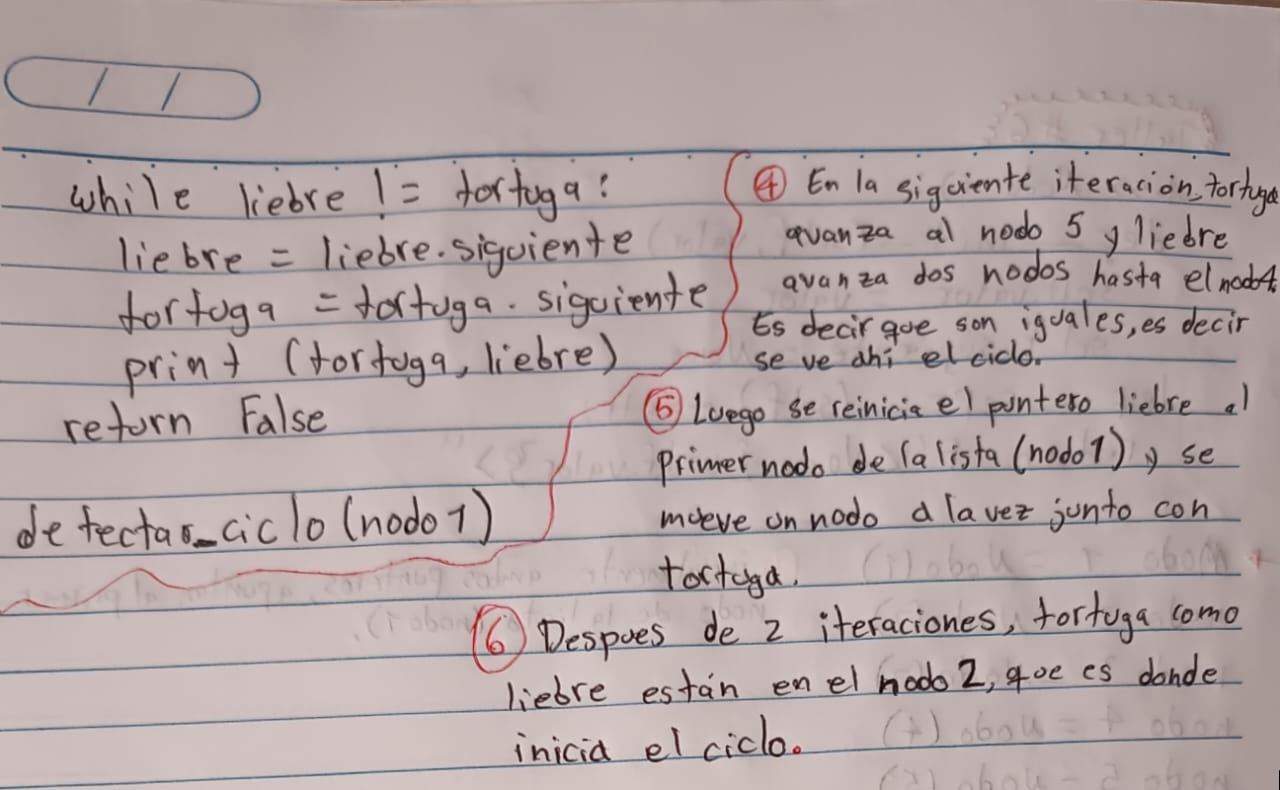 while liebre != tortuga:
liebre = liebre.siguiente
tortuga = tortuga.siguiente
print (tortuga, liebre)
return False
detectar_ciclo(nodo1)
④ En la siguiente iteración, tortuga
avanza al nodo 5 y liebre
avanza dos nodos hasta el nodo4.
Es decir que son iguales, es decir
se ve ahí el ciclo.
⑤ Luego se reinicia el puntero liebre al
primer nodo de la lista (nodo1) y se
mueve un nodo a la vez junto con
tortuga.
⑥ Despues de 2 iteraciones, tortuga como
liebre están en el nodo 2, que es donde
inicia el ciclo.